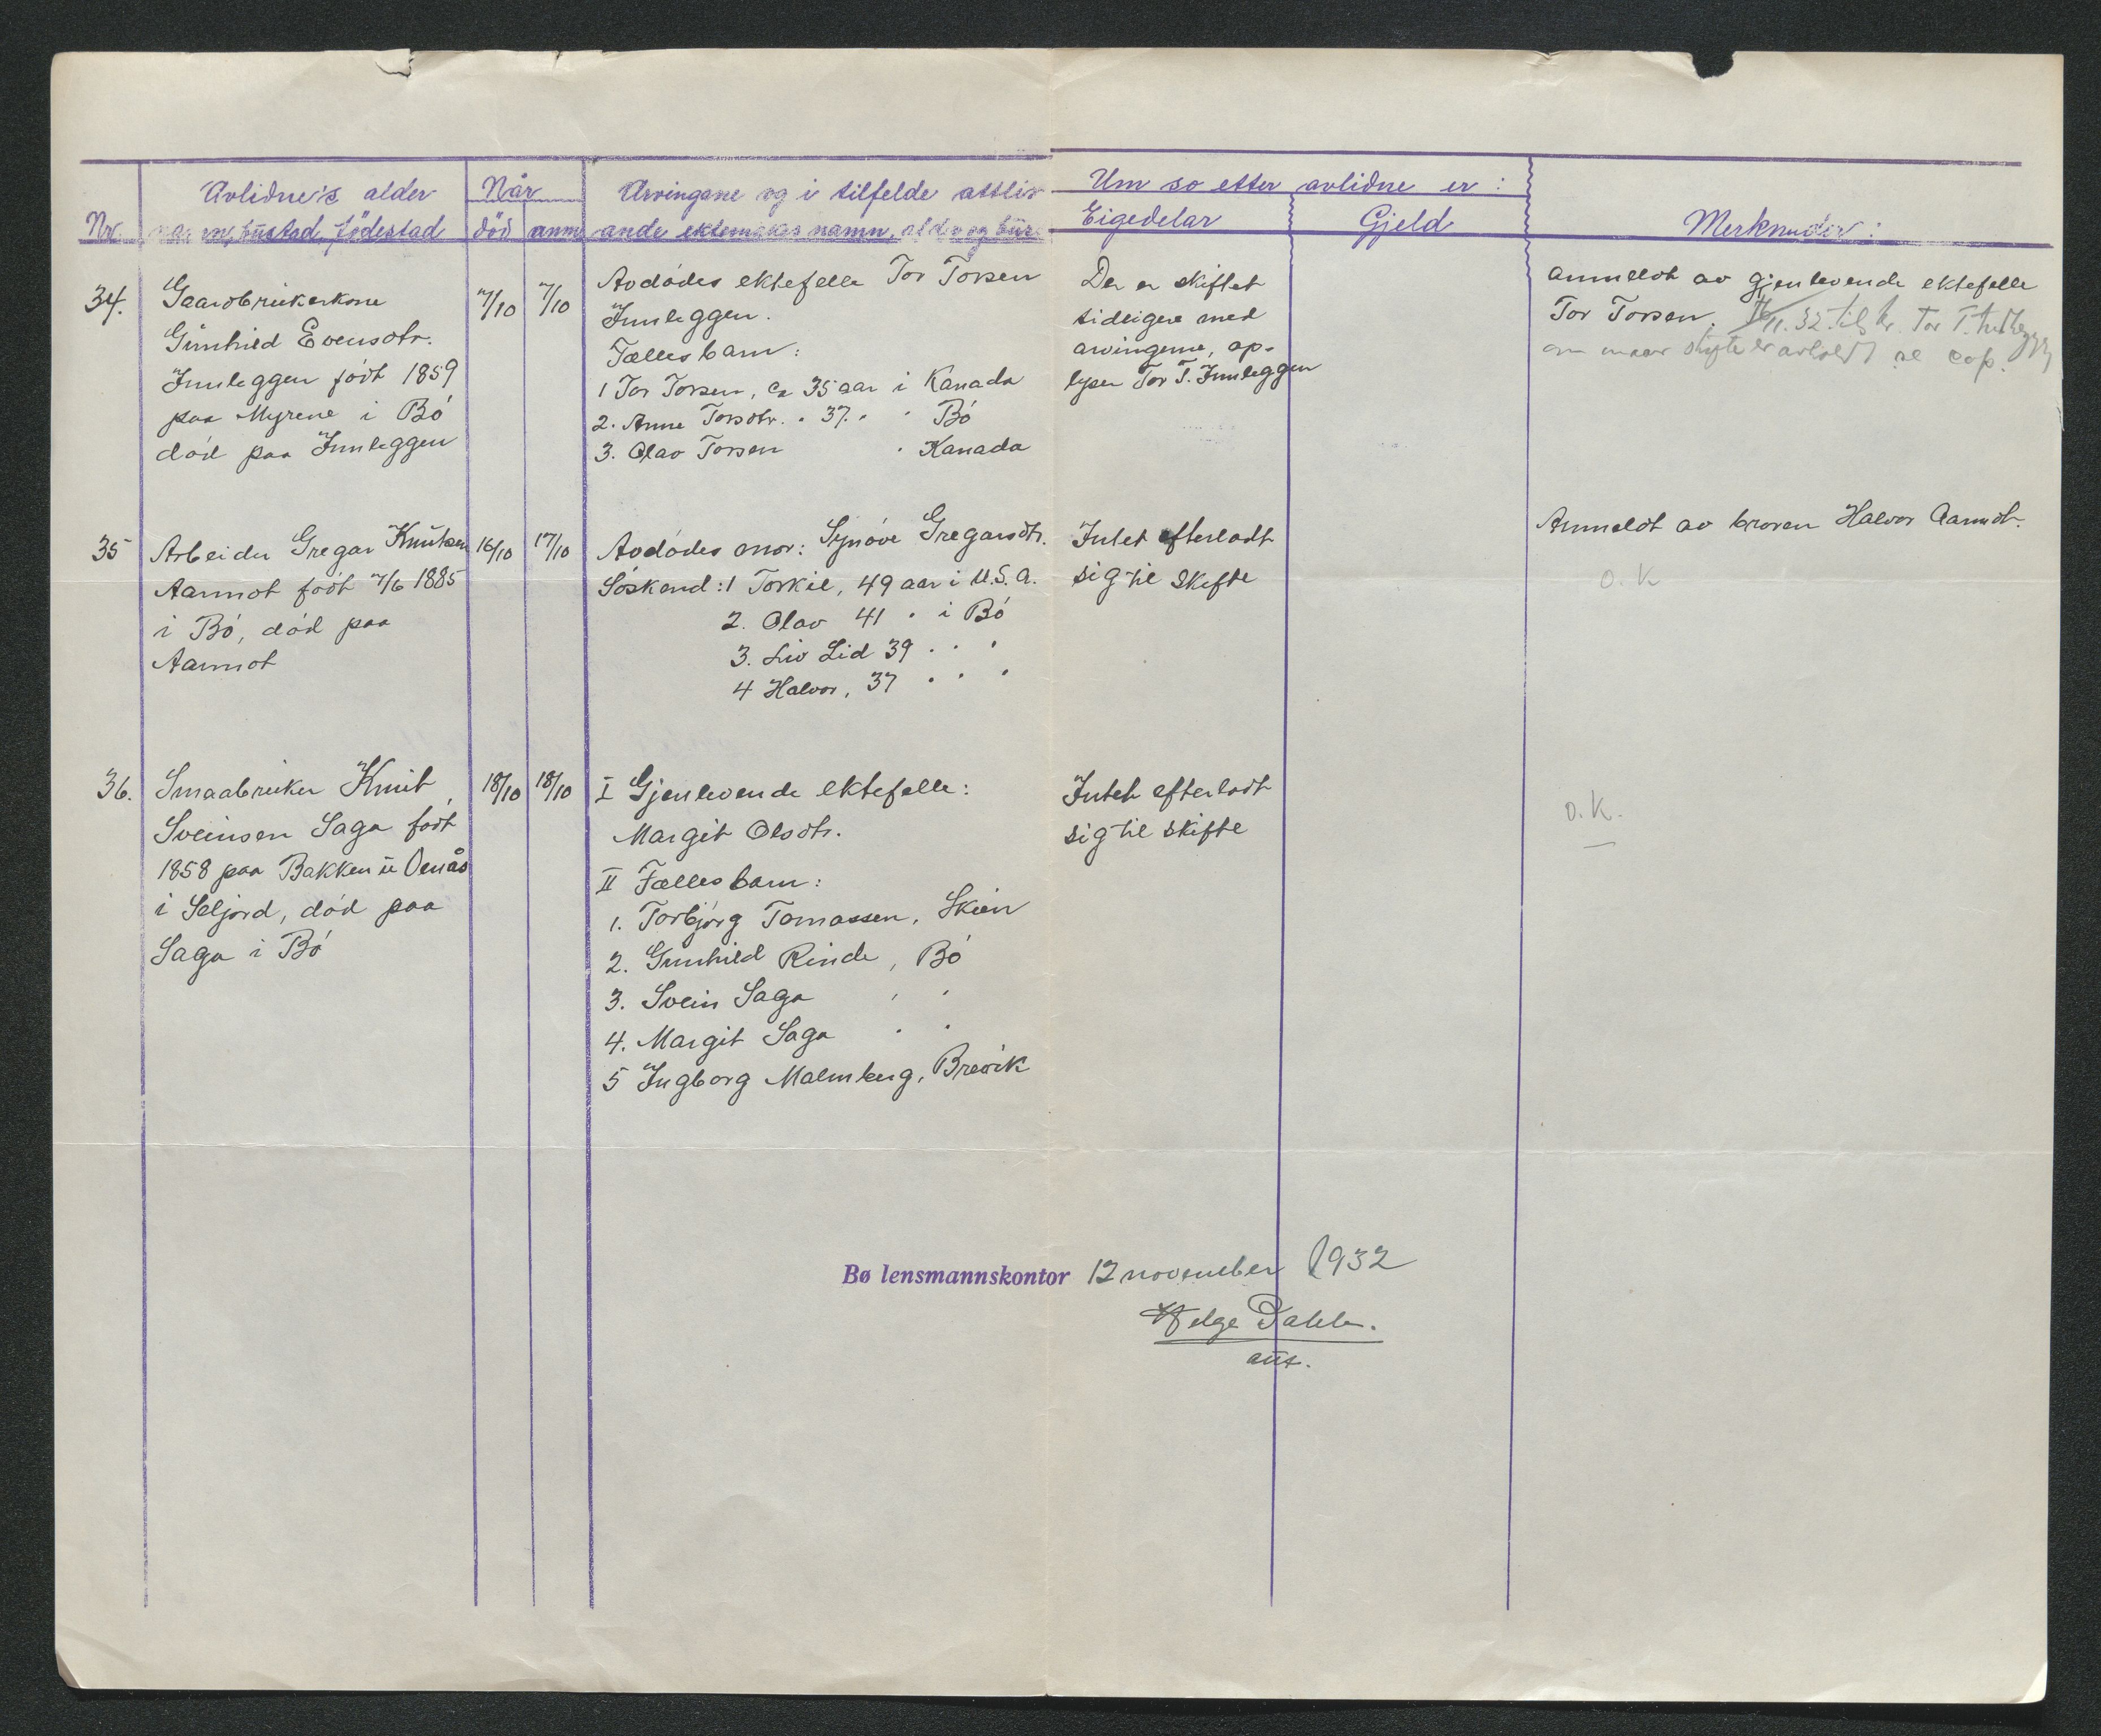 Nr.
Avlidne's alder
namn, bustad, fødestad
Når
død
anm
Arvingane og i tilfelde attliv-
ande ektemakes namn, alder og bus-
Um so etter avlidne er:
Eigedelar
Gjeld
Merknader:
34.
Gaardbrukerkone
Gunhild Evensdtr.
Innleggen født 1859
paa Myrene i Bø
død paa Innleggen
7/10
7/10
Avdødes ektefelle Tor Torsen
Innleggen.
Fælles barn:
1 Tor Torsen, ca 35 aar i Kanada
2. Anne Torsdtr. " 37. " " Bø
3. Olav Torsen " Kanada
Der er skiftet
tidligere med
arvingerne, op-
lyser Tor T. Innleggen
Anmeldt av gjenlevende ektefelle
Tor Torsen. /11.32. til hr. Tor T. Innleggen
om naar skifte er avholdt
35
Arbeider Gregar Knutsen
Aarmot født 7/6 1885
i Bø, død paa
Aarmot
16/10
17/10
Avdødes mor: Synøve Gregarsdtr.
Søskend: 1 Torkil, 49 aar i U.S.A.
2. Olav 41 " i Bø
3. Liv Lid 39 " " "
4 Halvor, 37 " " "
Intet efterladt
sig til skifte
Anmeldt av broren Halvor Aarmot.
O.K
36.
Smaabruker Knut
Sveinsen Saga født
1858 paa Bakken u Aanås
i Seljord, død paa
Saga i Bø
18/10
18/10
I Gjenlevende ektefelle:
Margit Olsdtr.
II Fælles barn:
1. Torbjørg Tomassen, Skien
2. Gunhild Rinde, Bø
3. Svein Saga " "
4. Margit Saga " "
5 Ingborg Malmberg, Brevik
Intet efterladt
sig til skifte
O.K.
Bø lensmannskontor 12 november 1932
Helge Dahle.
aut.